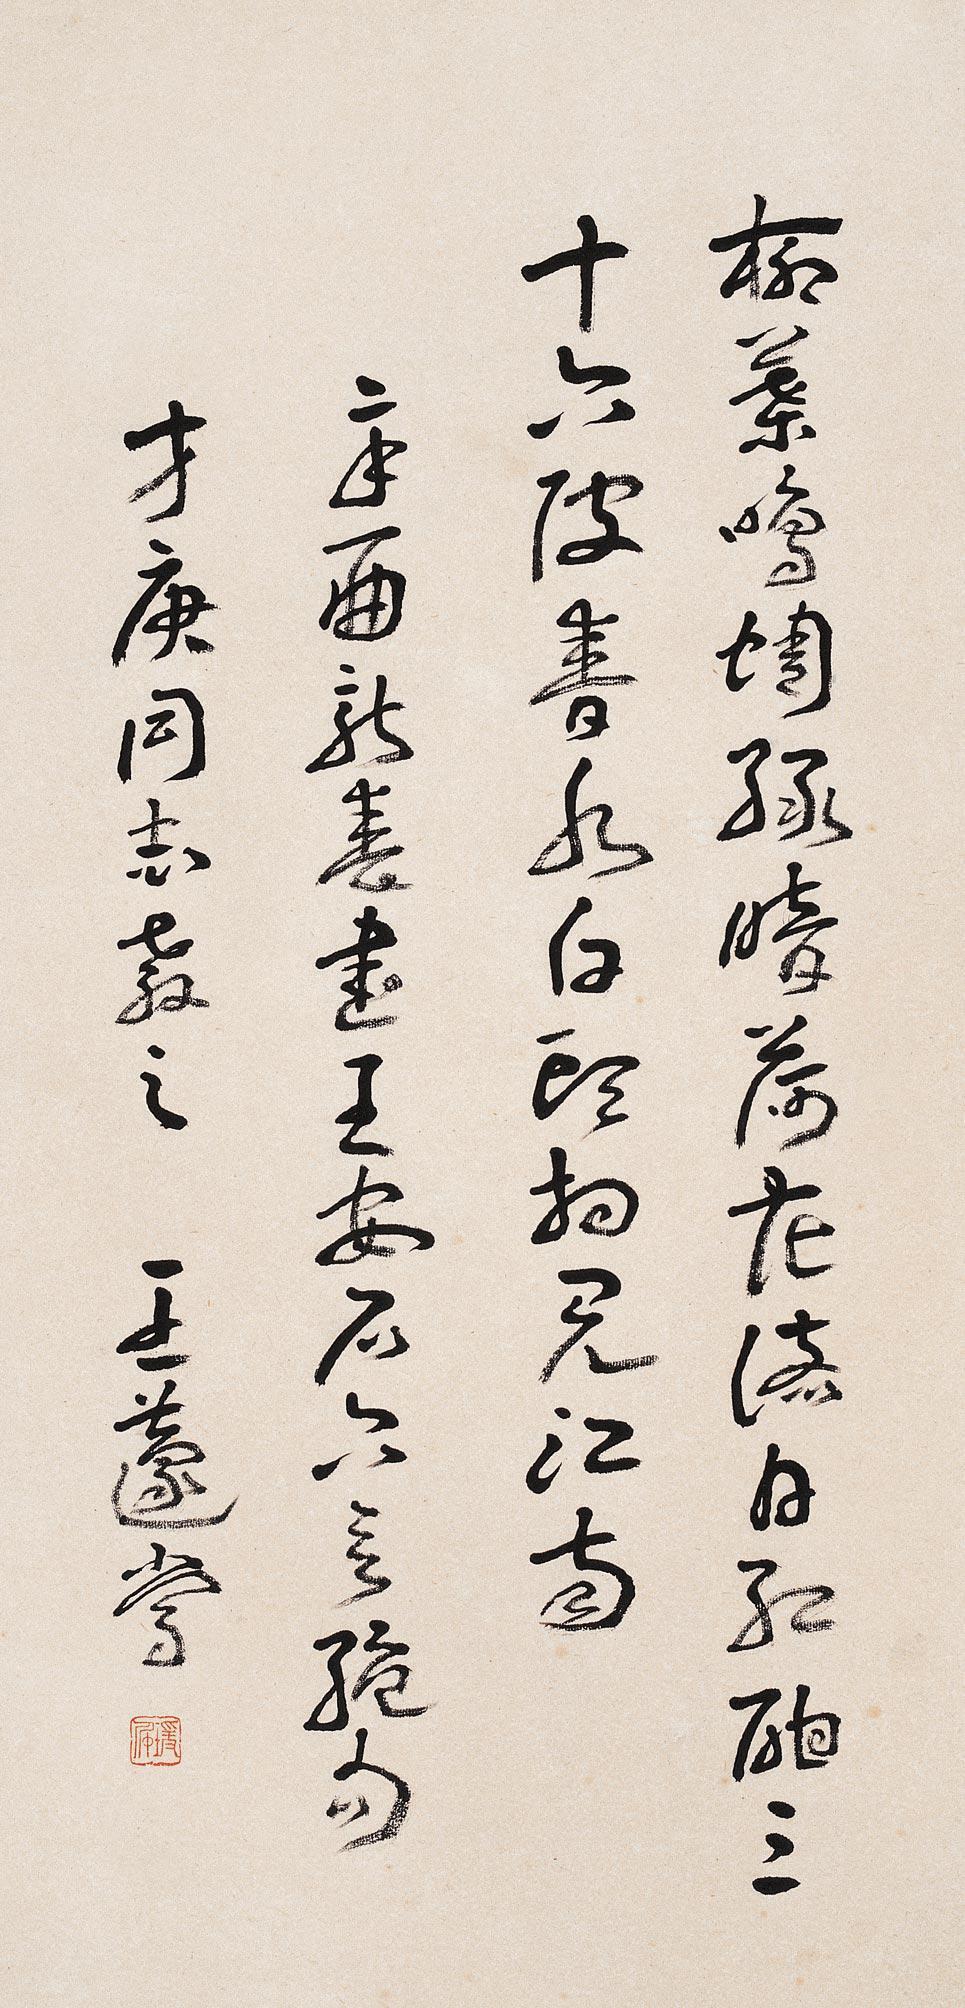 柳葉鳴蜩綠暗荷花落日紅酣三
十六陂春水白頭相見江南
辛酉新春書王安石六言絕句
才庚同志教之 王蘧常
瑗仲